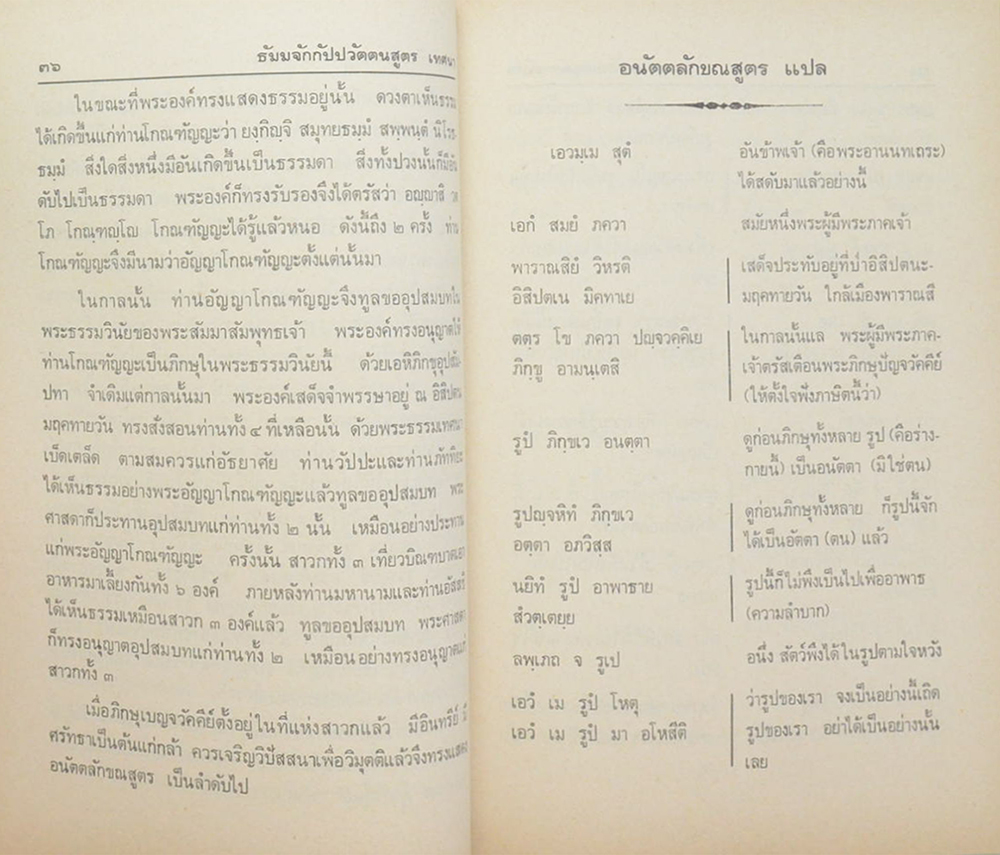 ๓๖ ธัมมจักกัปปวัตตนสูตร เทศนา
ในขณะที่พระองค์ทรงแสดงธรรมอยู่นั้น ดวงตาเห็นธรรม
ได้เกิดขึ้นแก่ท่านโกณฑัญญะว่า ยงฺกิญฺจิ สมุทยธมฺมํ สพฺพนฺตํ นิโรธ
ธมฺมํ สิ่งใดสิ่งหนึ่งมีอันเกิดขึ้นเป็นธรรมดา สิ่งทั้งปวงนั้นก็มีอัน
ดับไปเป็นธรรมดา พระองค์ก็ทรงรับรองจึงได้ตรัสว่า อญฺญาสิ วต
โภ โกณฺฑญฺโญ โกณฑัญญะได้รู้แล้วหนอ ดังนี้ถึง ๒ ครั้ง ท่าน
โกณฑัญญะจึงมีนามว่าอัญญาโกณฑัญญะตั้งแต่นั้นมา
ในกาลนั้น ท่านอัญญาโกณฑัญญะจึงทูลขออุปสมบทใน
พระธรรมวินัยของพระสัมมาสัมพุทธเจ้า พระองค์ทรงอนุญาตให้
ท่านโกณฑัญญะเป็นภิกษุในพระธรรมวินัยนี้ ด้วยเอหิภิกขุอุปสัม-
ปทา จำเดิมแต่กาลนั้นมา พระองค์เสด็จจำพรรษาอยู่ ณ อิสิปตน
มฤคทายวัน ทรงสั่งสอนท่านทั้ง ๔ ที่เหลือนั้น ด้วยพระธรรมเทศนา
เบ็ดเตล็ด ตามสมควรแก่อัธยาศัย ท่านวัปปะและท่านภัททิยะ
ได้เห็นธรรมอย่างพระอัญญาโกณฑัญญะแล้วทูลขออุปสมบท พระ
ศาสดาก็ประทานอุปสมบทแก่ท่านทั้ง ๒ นั้น เหมือนอย่างประทาน
แก่พระอัญญาโกณฑัญญะ ครั้งนั้น สาวกทั้ง ๓ เที่ยวบิณฑบาตเอา
อาหารมาเลี้ยงกันทั้ง ๖ องค์ ภายหลังท่านมหานามและท่านอัสสชิ
ได้เห็นธรรมเหมือนสาวก ๓ องค์แล้ว ทูลขออุปสมบท พระศาสดา
ก็ทรงอนุญาตอุปสมบทแก่ท่านทั้ง ๒ เหมือนอย่างทรงอนุญาตแก่
สาวกทั้ง ๓
เมื่อภิกษุเบญจวัคคีย์ตั้งอยู่ในที่แห่งสาวกแล้ว มีอินทรีย์ มี
ศรัทธาเป็นต้นแก่กล้า ควรเจริญวิปัสสนาเพื่อวิมุตติแล้วจึงทรงแสดง
อนัตตลักขณสูตร เป็นลำดับไป
อนัตตลักขณสูตร แปล
เอวมฺเม สุตํ อันข้าพเจ้า (คือพระอานนทเถระ)
ได้สดับมาแล้วอย่างนี้
เอกํ สมยํ ภควา สมัยหนึ่งพระผู้มีพระภาคเจ้า
พาราณสิยํ วิหรติ เสด็จประทับอยู่ที่ป่าอิสิปตนะ-
อิสิปตเน มิคทาเย มฤคทายวัน ใกล้เมืองพาราณสี
ตตฺร โข ภควา ปญฺจวคฺคิเย ในกาลนั้นแล พระผู้มีพระภาค-
ภิกฺขู อามนฺเตสิ เจ้าตรัสเตือนพระภิกษุปัญจวัคคีย์
(ให้ตั้งใจฟังภาษิตนี้ว่า)
รูปํ ภิกฺขเว อนตฺตา ดูก่อนภิกษุทั้งหลาย รูป (คือร่าง-
กายนี้) เป็นอนัตตา (มิใช่ตน)
รูปญฺจหิทํ ภิกฺขเว ดูก่อนภิกษุทั้งหลาย ก็รูปนี้จัก
อตฺตา อภวิสฺส ได้เป็นอัตตา (ตน) แล้ว
นยิทํ รูปํ อาพาธาย รูปนี้ก็ไม่พึงเป็นไปเพื่ออาพาธ
สํวตฺเตยฺย (ความลำบาก)
ลพฺเภถ จ รูเป อนึ่ง สัตว์พึงได้ในรูปตามใจหวัง
เอวํ เม รูปํ โหตุ ว่ารูปของเรา จงเป็นอย่างนี้เถิด
เอวํ เม รูปํ มา อโหสีติ รูปของเรา อย่าได้เป็นอย่างนั้น
เลย